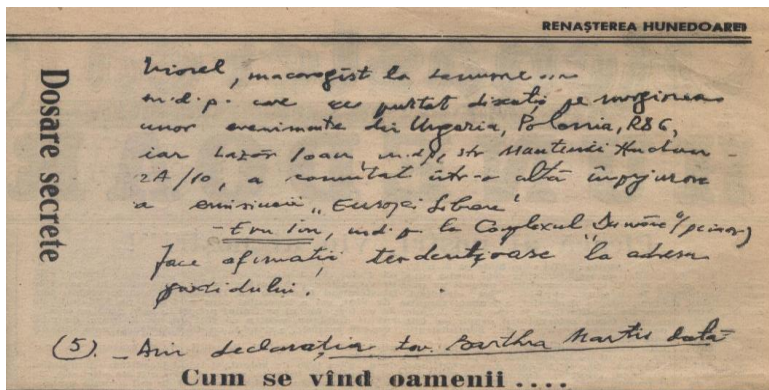 RENAȘTEREA HUNEDOAREI
Dosare secrete
Viorel, la
m.d.p. care au purtat discuții pe marginea
unor evenimente din Ungaria, Polonia, RSC,
iar Lazăr Ioan, m.d.p., str
2A/10, a comentat într-o altă împrejurare
a emisiunii „Europei Libere"
- Ion, m.d.p la Complexul
face afirmații tendențioase la adresa
partidului.
(5). - Din declarația tov. dată
Cum se vînd oamenii ....